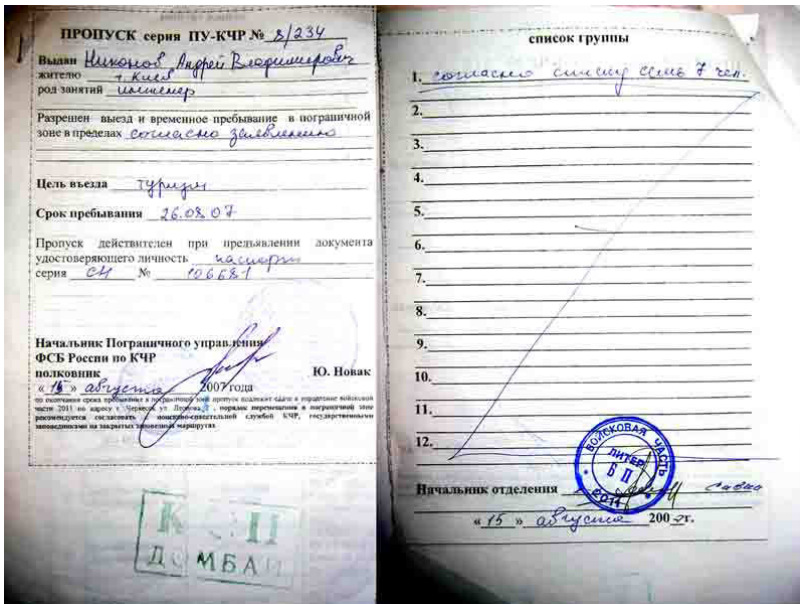 ПРОПУСК серия ПУ-КЧР № 8/234
Выдан Никонов Андрей Владимирович
жителю г. Киев
род занятий инженер
Разрешен выезд и временное пребывание в пограничной
зоне в пределах согласно заявлению
Цель въезда туризм
Срок пребывания 26.08.07
Пропуск действителен при предъявлении документа
удостоверяющего личность паспорт
серия СН № 106681
Начальник Пограничного управления
ФСБ России по КЧР
полковник Ю. Новак
« 15 » августа 2007 года
по окончании срока пребывания в пограничной зоне пропуск подлежит сдаче в управление войсковой
части 2011 по адресу г. Черкесск ул. , порядок перемещения в пограничной зоне
рекомендуется согласовать с поисково-спасательной службой КЧР, государственными
заповедниками на закрытых заповедных маршрутах
КСП
ДОМБАЙ
список группы
1. согласно списку семь 7 чел.
2.
3.
4.
5.
6.
7.
8.
9.
10.
11.
12.
ВОЙСКОВАЯ ЧАСТЬ
ЛИТЕР
БП
* 2011 *
Начальник отделения
« 15 » августа 2007г.